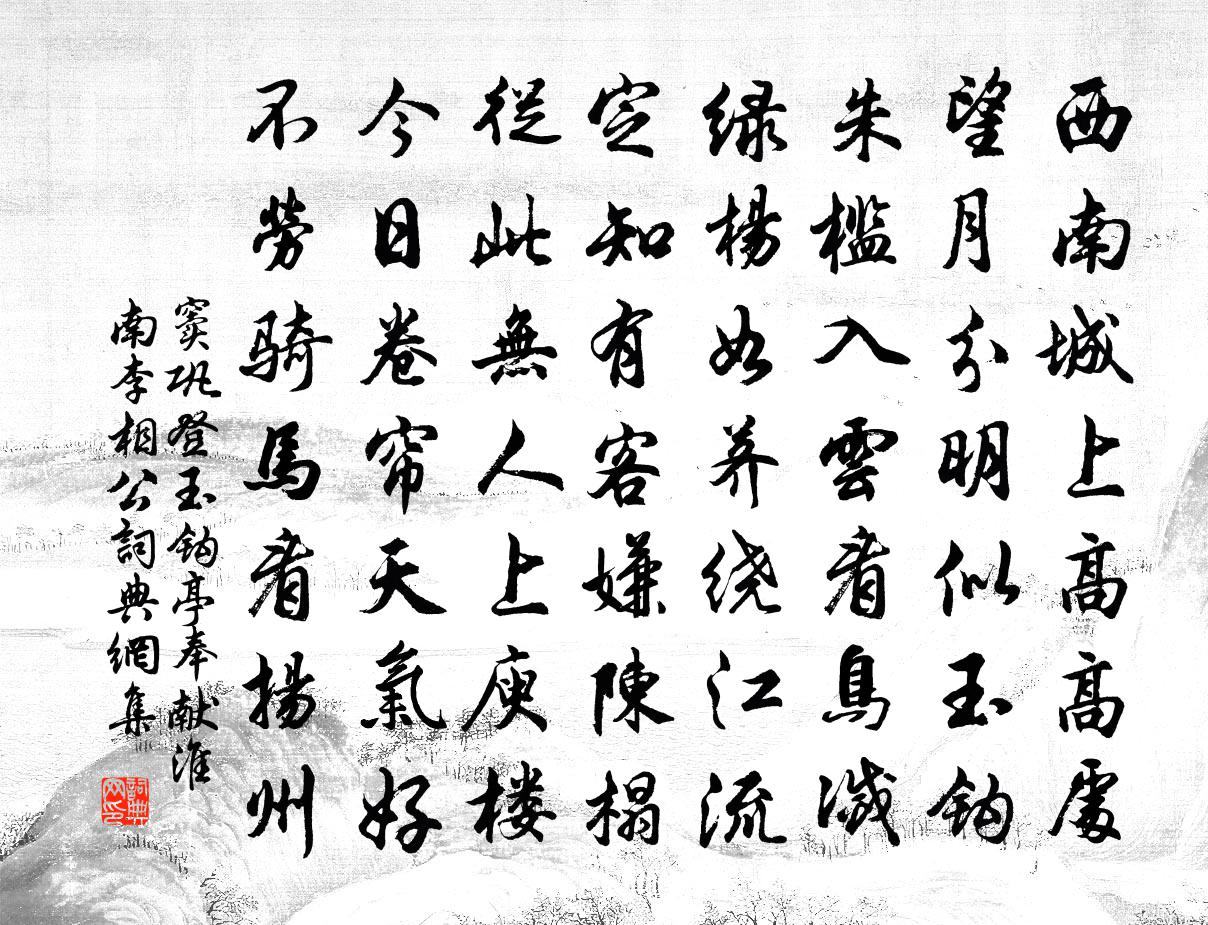 西南城上高高處
望月分明似玉钩
朱槛入雲看鳥滅
绿楊如荠绕江流
定知有客嫌陳榻
從此無人上庾楼
今日卷帘天氣好
不勞骑馬看揚州
窦巩登玉钩亭奉献淮
南李相公詞典網集
詞典网印